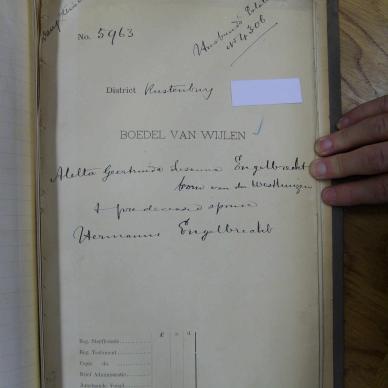 No. 5963
Husband's Estate
No 4306
District Rustenburg
BOEDEL VAN WIJLEN
Aletta Geertruida Susanna Engelbrecht
born van der Westhuizen
& predeceased spouse
Hermanus Engelbrecht
£ s d
Reg. Meesterskosten
Reg. Testament
Copie do
Brief Administratie